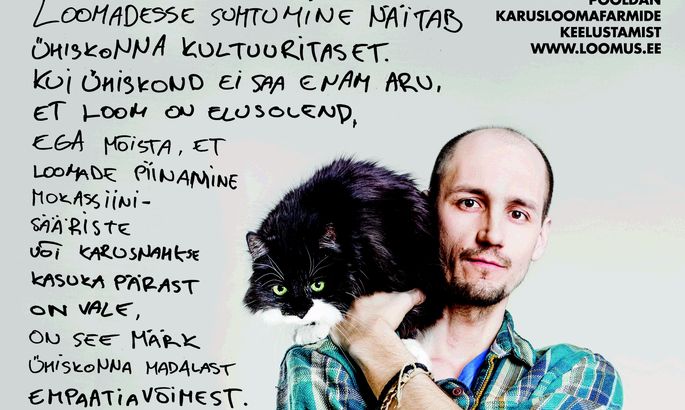 LOOMADESSE SUHTUMINE NÄITAB
ÜHISKONNA KULTUURITASET.
KUI ÜHISKOND EI SAA ENAM ARU,
ET LOOM ON ELUSOLEND,
EGA MÕISTA, ET
LOOMADE PIINAMINE
MOKASSIINI-
SÄÄRISTE
VÕI KARUSNAHKSE
KASUKA PÄRAST
ON VALE,
ON SEE MÄRK
ÜHISKONNA MADALAST
EMPAATIAVÕIMEST.
POOLDAN
KARUSLOOMAFARMIDE
KEELUSTAMIST
WWW.LOOMUS.EE